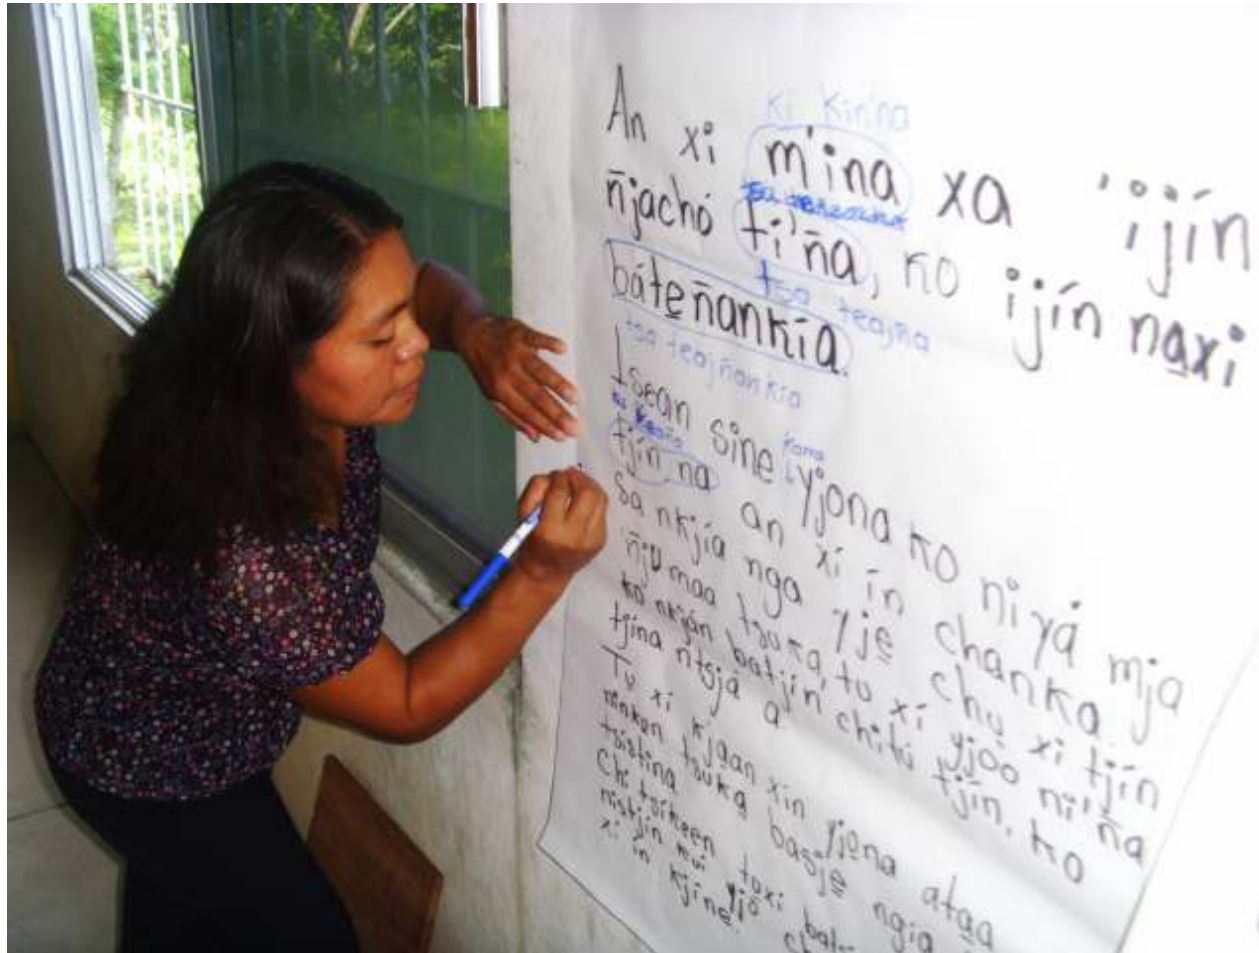 ki kin'na
An xi m'ina xa 'ijín
ñjachó tí'ña, ko ijín na̱xi
tsa teajña
báte̱ñankía.
tsa teajñankía
Isean sine yjona ko ni yá mja
tjín na an xi ín chanka
sa nkjía nga yje̱ chu̱ xi tjín
ñju maa tsuka, tu xi yjoo ni'ña
ko nkján batjín chitú tjín. ko
tjína ntsja a
Tu xi kjaan xin yjo̱na ata̱a
tsuka̱ basje̱ ngia
Chi tsikeen
xi in kjine̱.